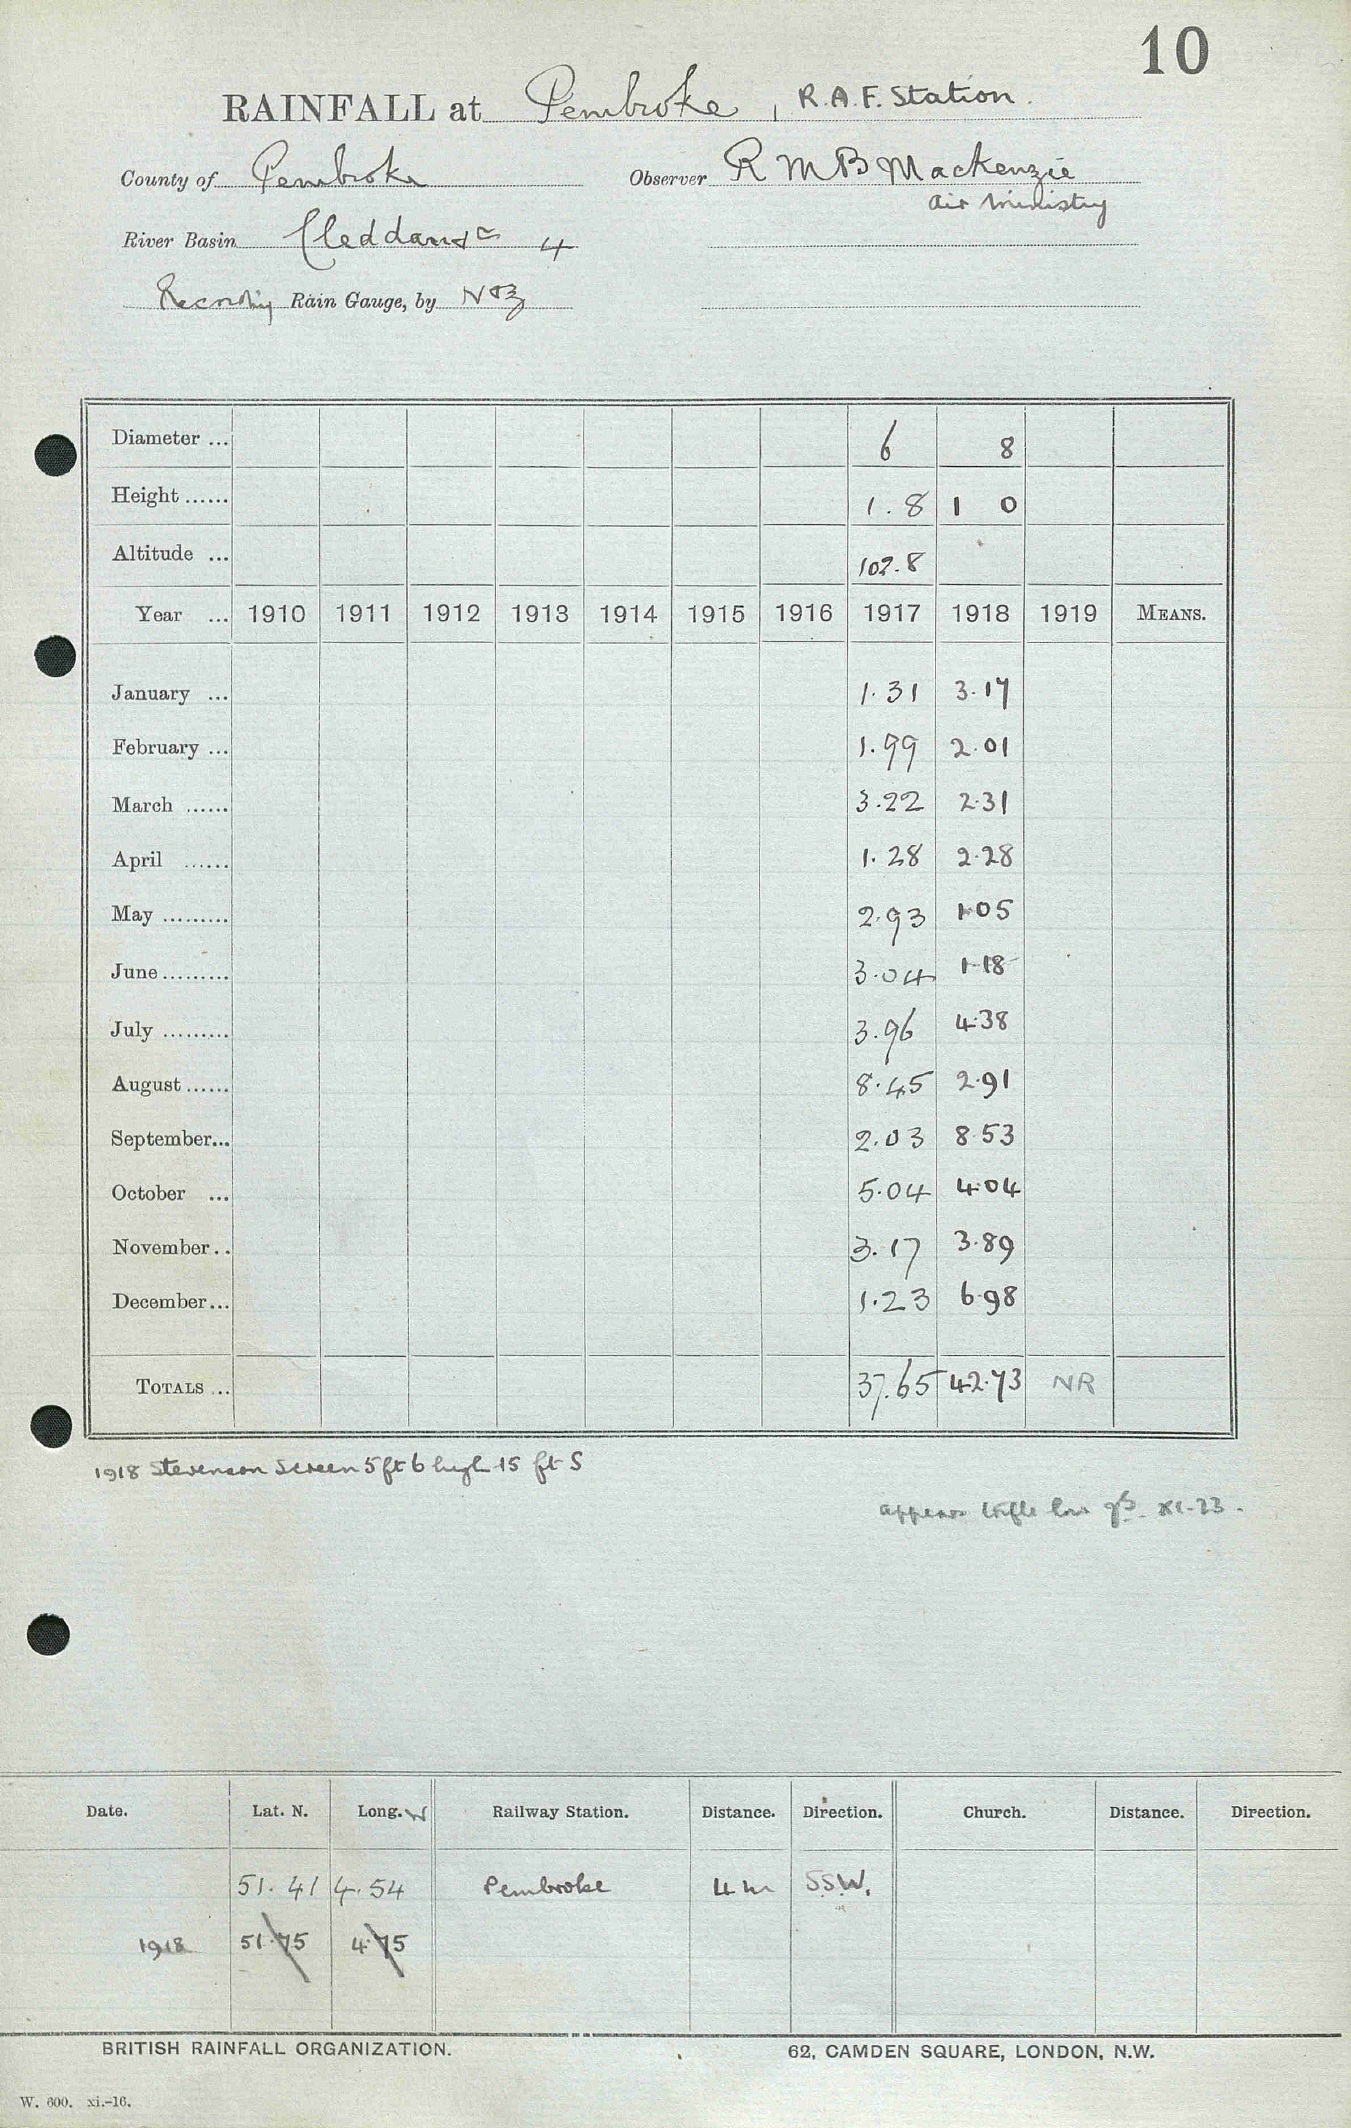 10
RAINFALL at Pembroke, R.A.F. Station.
County of Pembroke Observer R M B Mackenzie
Air Ministry
River Basin 4
Recording Rain Gauge, by
Diameter ... 6 8
Height ...... 1.8 1 0
Altitude ... 102.8
Year ... 1910 1911 1912 1913 1914 1915 1916 1917 1918 1919 MEANS.
January ... 1.31 3.17
February ... 1.99 2.01
March ...... 3.22 2.31
April ...... 1.28 2.28
May ......... 2.93 1.05
June ......... 3.04 1.18
July ......... 3.96 4.38
August ...... 8.45 2.91
September... 2.03 8.53
October ... 5.04 4.04
November .. 3.17 3.89
December... 1.23 6.98
TOTALS ... 37.65 42.73 NR
1918 Stevenson Screen 5 ft 6 high 15 ft S
appears trifle low XI-23.
Date. Lat. N. Long. W Railway Station. Distance. Direction. Church. Distance. Direction.
51.41 4.54 Pembroke 4 m S.S.W.
1918 51.75 4.75
BRITISH RAINFALL ORGANIZATION. 62, CAMDEN SQUARE, LONDON, N.W.
W. 600. xi.-16.